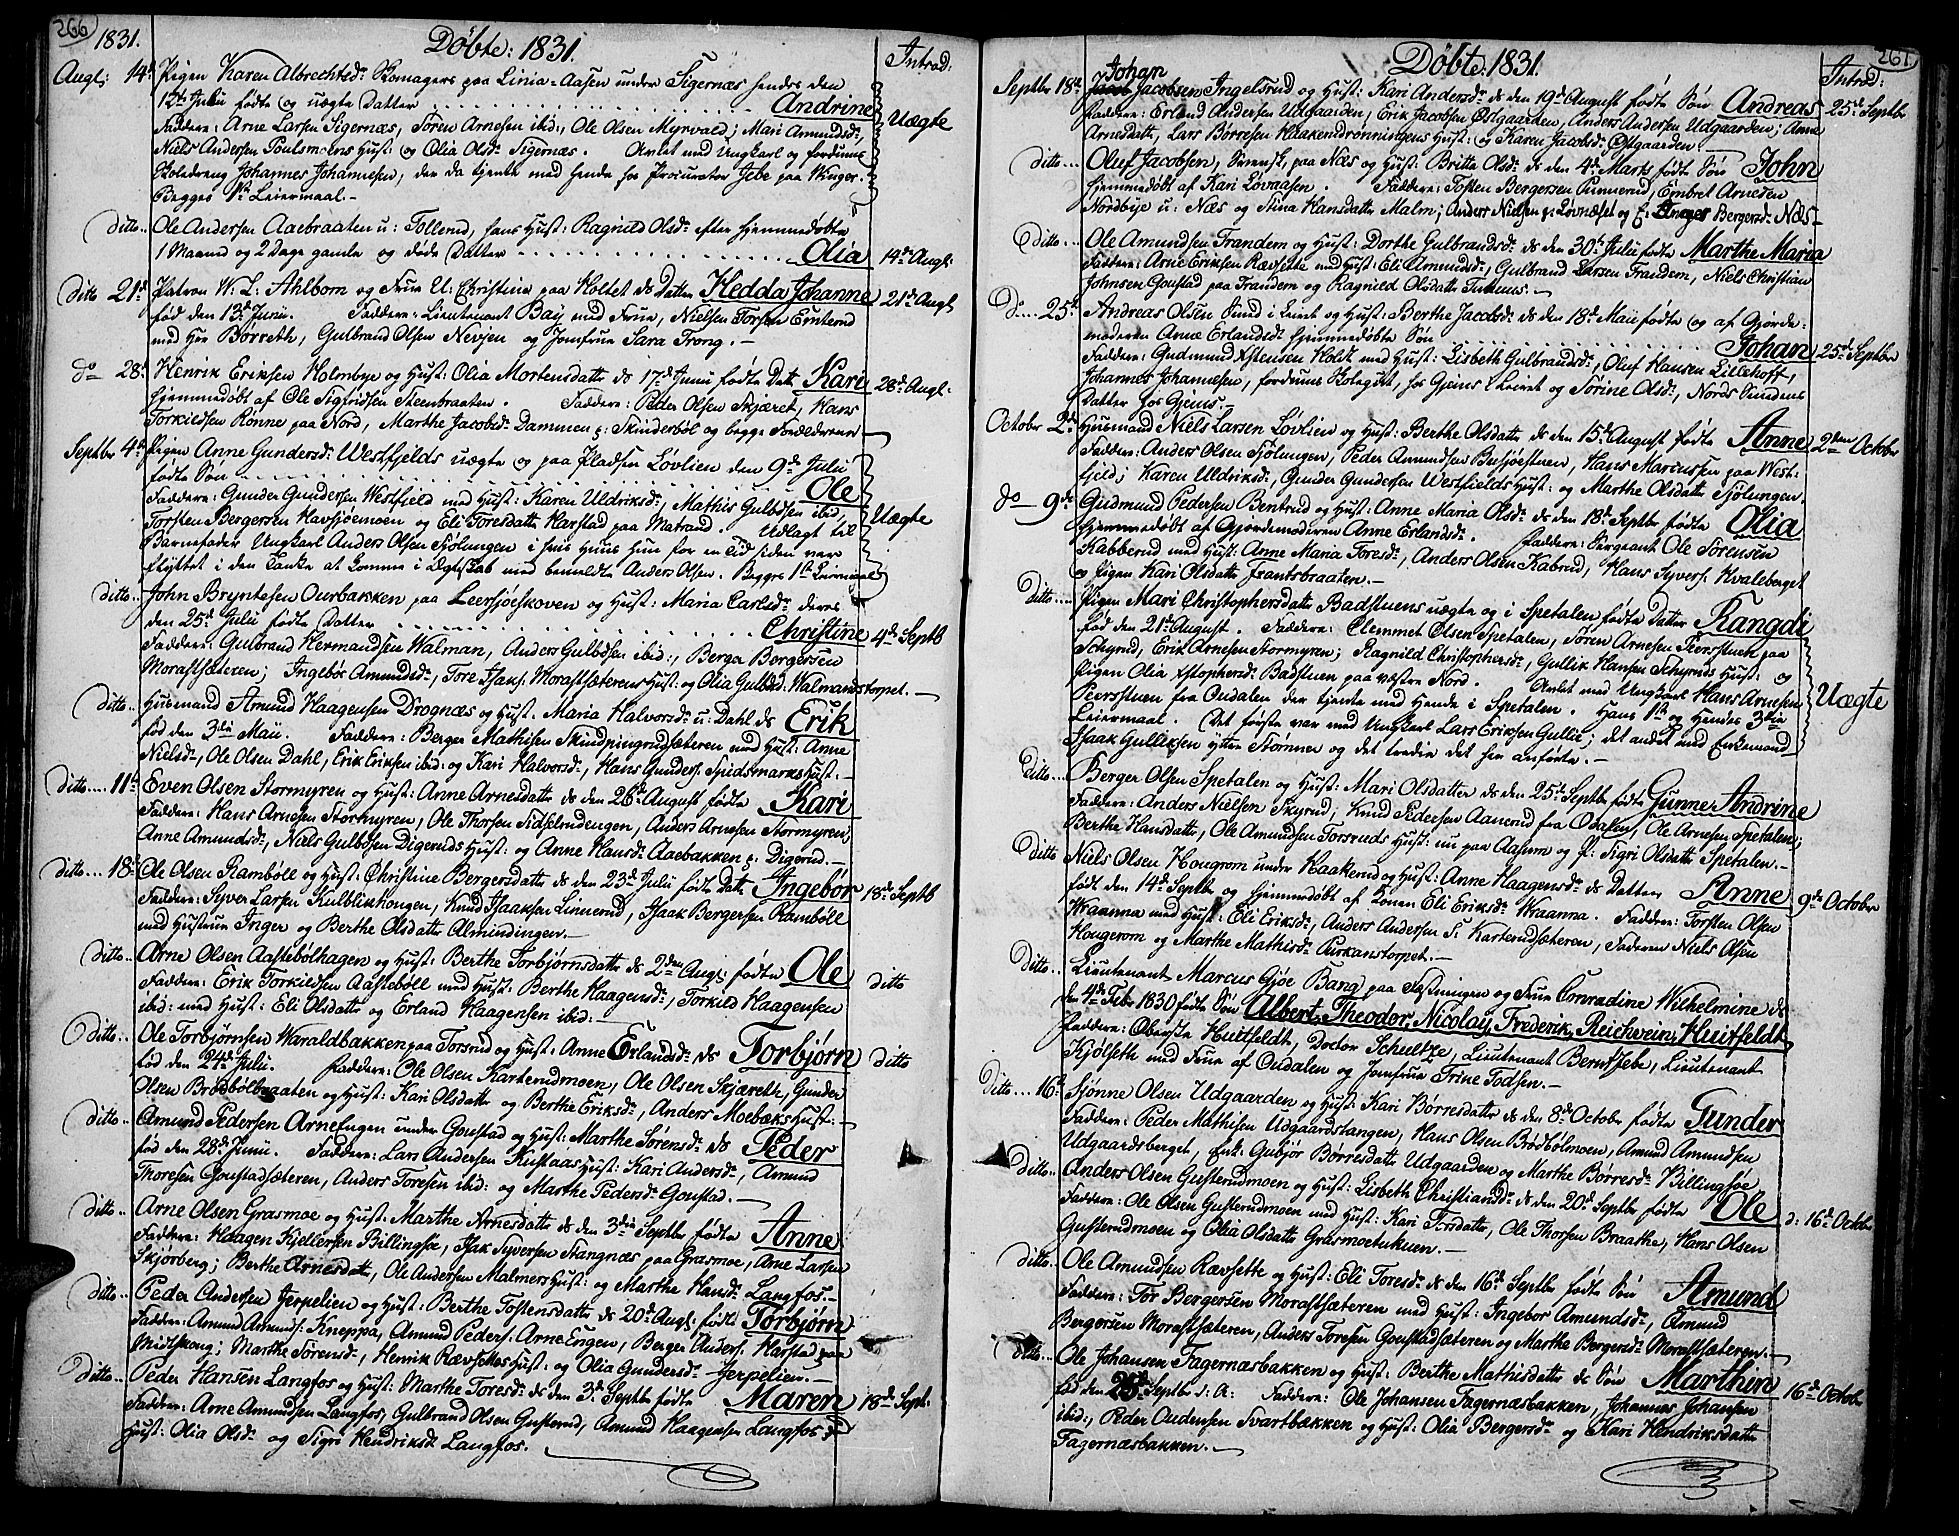 266
1831.
Döbte: 1831.
Introd:
Augt: 14de Pigen Karen Albrechtsdr Bomagers paa Linia-Aasen under Sigernæs hendes den
12te Julii födte og uægte Datter Andrine
Faddere: Arne Larsen Sigernæs, Sören Arnesen ibid:, Ole Olsen Myrvald; Mari Amundsdr,
Uægte
Niels Andersen Poulsmoens Hust: og Olia Olsdr Sigernæs. Avlet med Ungkarl og fordums
Johannes Johannesen, der da tjente med hende hos Procurator Jebe paa Winger.
Begges 1ste Leiermaal.-
ditto.. Ole Andersen Aaebraaten u: Tollerud, hans Hust: Ragnild Olsdr efter hjemmedöbte
1 Maaned og 2 Dage gamle og döde Datter Olia 14de Augt:
ditto 21de Patron W. L. Ahlborn og Frue U: Christina paa Holtet ds Datter Hedda Johanne 21de Augt
föd den 13de Junii. Faddere: Lieutenant Bay med Frue, Nielsen Torsen
med Hr Börreth, Gulbrand Olsen Nevjen og Jomfrue Sara Trong.-
do 28. Henrik Eriksen Holmbye og Hust: Olia Mortensdatter ds 17de Junii födte Datr Kari 28de Augt:
hjemmedöbt af Ole Sigfridsen Steenbraaten. Faddere: Peder Olsen Skjæret, Hans
Torkildsen Rönne paa Nord, Marthe Jacobsdr Dammen p: Skinderböl og begge Forældrene
Septbr 4de Pigen Anne Gundersdr Westfjelds uægte og paa Pladsen Lövlien den 9de Julii
födte Sön Ole
Faddere: Gunder Gundersen Westfield med Hust: Karen Uldriksdr, Mathis Gulbdsen ibid,
Torsten Bergersen Havsjöemoen og Eli Toresdatter Harstad paa Matrand. Udlagt til
Uægte
Barnefader Ungkarl Anders Olsen Sjölungen i hvis Huus hun for en Tid siden var
flyttet i den Tanke at komme i Ægteskab med bemeldte Anders Olsen. Begges 1ste Leiermaal
ditto.. John Bryntesen Ourbakken paa Leersjöeskoven og Hust: Maria Carlsdr deres
den 25de Julii födte Datter Christine 4de Septb
Faddere: Gulbrand Hermandsen Walman, Anders Gulbdsen ibid:, Berger Bergersen
Morastsæteren; Ingebör Amundsdr, Tore Isaks: Morastsæterens Hust: og Olia Gulbdsd: Walmandstorpet.-
ditto.. Husmand Amund Haagensen Drognæs og Hust: Maria Halvorsdr u: Dahl ds Erik
föd den 3die Maii. Faddere: Berger Mathisen Skindpingrudsæteren med Hust: Anne
Nielsdr, Ole Olsen Dahl, Erik Eriksen ibid: og Kari Halvorsdr, Hans Gunders: Spidsmarks Hust:-
ditto.... 11te Even Olsen Stormyren og Hust: Anne Arnesdatter ds den 26de August födte Kari
Faddere: Hans Arnesen Stormyren, Ole Thorsen Sidselrudengen, Anders Arnesen Stormyren,
Anne Amundsdr, Niels Gulbdsen Digeruds Hust: og Anne Hansdr Aaebakken p: Digerud.-
ditto.... 18de Ole Olsen Ramböll og Hust: Christine Bergersdatter ds den 23de Julii födte Datr Ingebör 18de Septb
Faddere: Syver Larsen Kulblikhougen, Knud Isaaksen Linnerud, Isaak Bergersen Ramböll
med Hustrue Inger og Berthe Olsdatter Almindingen.-
ditto.. Arne Olsen Aastebölhagen og Hust: Berthe Torbjörnsdatter ds 2den Augt: födte Ole
Faddere: Erik Torkildsen Aasteböll med Hust: Berthe Haagensdr, Torkild Haagensen ditto
ibid: med Hust: Eli Olsdatter og Erland Haagensen ibid:-
ditto.. Ole Torbjörnsen Waraldbakken paa Torsrud og Hust: Anne Erlandsdr ds Torbjörn
föd den 24de Julii. Faddere: Ole Olsen Karterudmoen, Ole Olsen Skjæreth, Gunder ditto
Olsen Brödbölbraaten og Hust: Kari Olsdatter og Berthe Eriksdr, Anders Moebæks Hust:-
ditto.. Amund Pedersen Arnefugen under Goustad og Hust: Marthe Sörensdr ds Peder
föd den 28de Junii. Faddere: Lars Andersen Kustaas Hust: Kari Andersdr, Amund
Thoresen Goustadsæteren, Anders Toresen ibid: og Marthe Pedersdr Goustad.-
ditto.. Arne Olsen Grasmoe og Hust: Marthe Arnesdatter ds den 3die Septbr födte Anne
Faddere: Haagen Kjellersen Billingsöe, Isak Syversen Stangnæs paa Grasmoe, Arne Larsen
Skjörberg; Berthe Arnesdatr, Ole Andersen Malmers Hust: og Marthe Hansdr Langfos.-
ditto.. Peder Andersen Jerpelien og Hust: Berthe Tostensdatter ds 20de Augt: födt Torbjörn
Faddere: Amund Amunds: Kneppa, Amund Peders: Arne Engen, Berger Anders: Harstad paa
Midtskoug; Marthe Sörensdr, Henrik Rævsættes Hust: og Olia Gundersdr Jerpelien.-
ditto.. Peder Hansen Langfos og Hust: Marthe Toresdr ds den 3de Septbr födte Maren 18de Sept:
Faddere: Arne Amundsen Langfos, Gulbrand Olsen Gusterud, Amund Haagensen Langfos
Hust: Olia Olsdr og Sigri Hendriksdr Langfos.
267
Döbte: 1831.
Introd:
Johan
Septbr 18de Jacob Jacobsen Ingelsrud og Hust: Kari Andersdr ds den 19de August födte Sön Andreas 25de Septbr
Faddere: Erland Andersen Udgaarden, Erik Jacobsen Östgaarden, Anders Andersen Udgaarden; Anne
Arnesdatter, Lars Börresen Haakendronningens Hust: og Karen Jacobsdr Östgaarden.-
ditto... Oluf Jacobsen, Svensk, paa Næs og Hust: Britta Olsdr ds den 4de Marts födte Sön John
hjemmedöbt af Kari Lövaasen. Faddere: Tosten Bergersen Punnerud, Embret Arnesen
Nordbye u: Næs og Stina Hansdatter Malm; Anders Nielsen p: Lövnæset og Bergersdr Næs-
ditto... Ole Amundsen Trandem og Hust: Dorthe Gulbrandsdr ds den 30te Julii födte Marthe Maria
Faddere: Arne Eriksen Rævsette med Hust: Eli Amundsdr, Gulbrand Larsen Trandem, Niels Christian
Johnsen Goustad paa Trandem og Ragnild Olsdatter .-
Do.... 25de Andreas Olsen Smed i Leiret og Hust: Berthe Jacobsdr ds den 18de Maii födte og af Gjorde-
moderen Anne Erlandsdr hjemmedöbte Sön Johan 25de Septbr
Faddere: Gudmund Östensen Holdt med Hust: Lisbeth Gulbrandsdr, Oluf Hansen Lillehoff,
Johannes Johannesen, fordums, hos Gjems i Leiret og Sörine Olsdr, Nords Smedens
Datter hos Gjems.
October 2de Husmand Niels Larsen Lövlien og Hust: Berthe Olsdatter ds den 15de August födte Anne 2den October
Faddere: Anders Olsen Sjölungen, Peder Amundsen Bersjöestuen, Hans Marcussen paa West-
fjeld; Karen Uldriksdr, Gunder Gundersen Westfjelds Hust: og Marthe Olsdatter Sjölungen.
do 9de Gudmund Pedersen Bentrud og Hust: Anne Maria Olsdr ds den 18de Septbr födte Olia
hjemmedöbt af Gjordemoderen Anne Erlandsdr. Faddere: Sergeant Ole Sörensen
Kabberud med Hust: Anne Maria Toresdr, Anders Olsen Kabrud, Hans Syvers: Kvaleberget
og Pigen Kari Olsdatter Frantsbraaten.-
ditto.... Pigen Mari Christophersdatter Badstuens uægte og i Spetalen födte Datter Rangdi
föd den 21de August. Faddere: Clemmet Olsen Spetalen, Sören Arnesen Peerstuen paa
Schyrud, Erik Arnesen Stormyren; Ragnild Christophersdr, Gullik Hansen Schyruds Hust: og
Pigen Olia Xstophersdr Badstuen paa væstre Nord. Avlet med Ungkarl Hans Arnesen
Peerstuen fra Oudalen der tjente med Hende i Spetalen. Hans 1ste og Hendes 3die Uægte
Leiermaal. Det förste var med Ungkarl Lars Eriksen Gullie; det andet med Enkemand
Isaak Gulliksen yttre Störmer og det tredie det her anförte.-
ditto... Berger Olsen Spetalen og Hust: Mari Olsdatter ds den 25de Septbr födte Gunne Andrine
Faddere: Anders Nielsen Skyrud, Knud Pedersen Aanerud fra Odalen, Ole Arnesen Spetalen;
Berthe Hansdatter, Ole Amundsen Torsruds Hust: nu paa Aasum og P: Sigri Olsdatter Spetalen.-
ditto Niels Olsen Hougrom under Haakerud og Hust: Anne Haagensdr ds Datter Anne 9de October
födt den 14de Septbr og hjemmedöbt af Konen Eli Eriksdr Wraanna. Faddere: Torsten Olsen
Wraanna med Hust: Eli Eriksdr, Anders Andersen S: Karterudsæteren, Faderen Niels Olsen
Hougerom og Marthe Mathisdr Purkanstorpet.-
ditto... Lieutenant Marcus Gjöe Bang paa Fæstningen og Frue Conradine Wilhelmine ds
den 4de Febr 1830 födte Sön Albert, Theodor, Nicolay, Frederik, Reichwein, Huitfeldt
Faddere: Oberste Huitfeldt, Doctor Schultze, Lieutenant Berntjebe, Lieutenant
Kjölseth med Frue af Oudalen og Jomfrue Trine Todsen.-
Ditto.... 16de Sjönne Olsen Udgaarden og Hust: Kari Börresdatter ds den 8de October födte Gunder
Faddere: Peder Mathisen Udgaardstangen, Hans Olsen Brödbölmoen, Amund Amundsen
Udgaardsberget, Enk: Gubjör Börresdatter Udgaarden og Marthe Börresdr Billingsöe
ditto... Anders Olsen Gusterudmoen og Hust: Lisbeth Christiandr ds den 20de Septbr födte Ole d: 16de Octobr
Faddere: Ole Olsen Gusterudmoen med Hust: Kari Torsdatter, Ole Thorsen Braathe, Hans Olsen
Gusterudmoen og Olia Olsdatter Grasmoetukuen.-
ditto... Ole Amundsen Rævsette og Hust: Eli Toresdr ds den 16de Septbr födte Sön Amund
Faddere: Tor Bergersen Morastsæteren med Hust: Ingebor Amundsdr, Amund
Bergersen Morastsæteren, Anders Toresen Goustadsæteren og Marthe Bergersdr Morastsæteren.-
ditto... Ole Johansen Fagernæsbakken og Hust: Berthe Mathisdatter ds Sön Marthin 16de October
föd den 25de Septbr d: A: Faddere: Ole Johansen Fagernæsbakken, Johannes Johansen
ibid:, Peder Oudensen Svartbækken og Hust: Olia Bergersdr og Kari Hendriksdatter
Fagernæsbakken.-